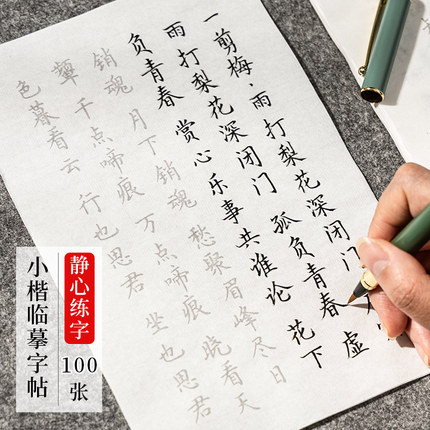 一剪梅·雨打梨花深闭门
雨打梨花深闭门 孤负青春 虚
负青春 赏心乐事共谁论 花下
销魂 月下销魂 愁聚眉峰尽日
颦 千点啼痕 万点啼痕 晓看天
色暮看云 行也思君 坐也思君
静心练字
100张
小楷临摹字帖